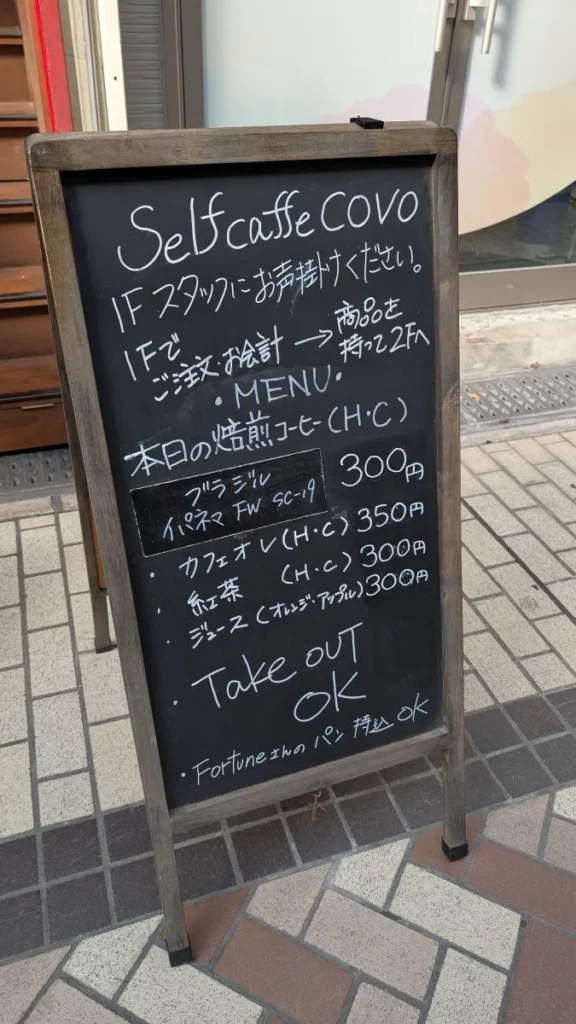 Self caffe COVO
1Fスタッフにお声掛けください。
1Fで
ご注文お会計 → 商品を
持って2Fへ
・MENU・
本日の焙煎コーヒー(H・C)
ブラジル
イパネマ FW SC-19
300円
・カフェオレ(H・C) 350円
・紅茶 (H・C) 300円
・ジュース(オレンジ・アップル)300円
・Take out
OK
・Fortuneさんのパン持込OK